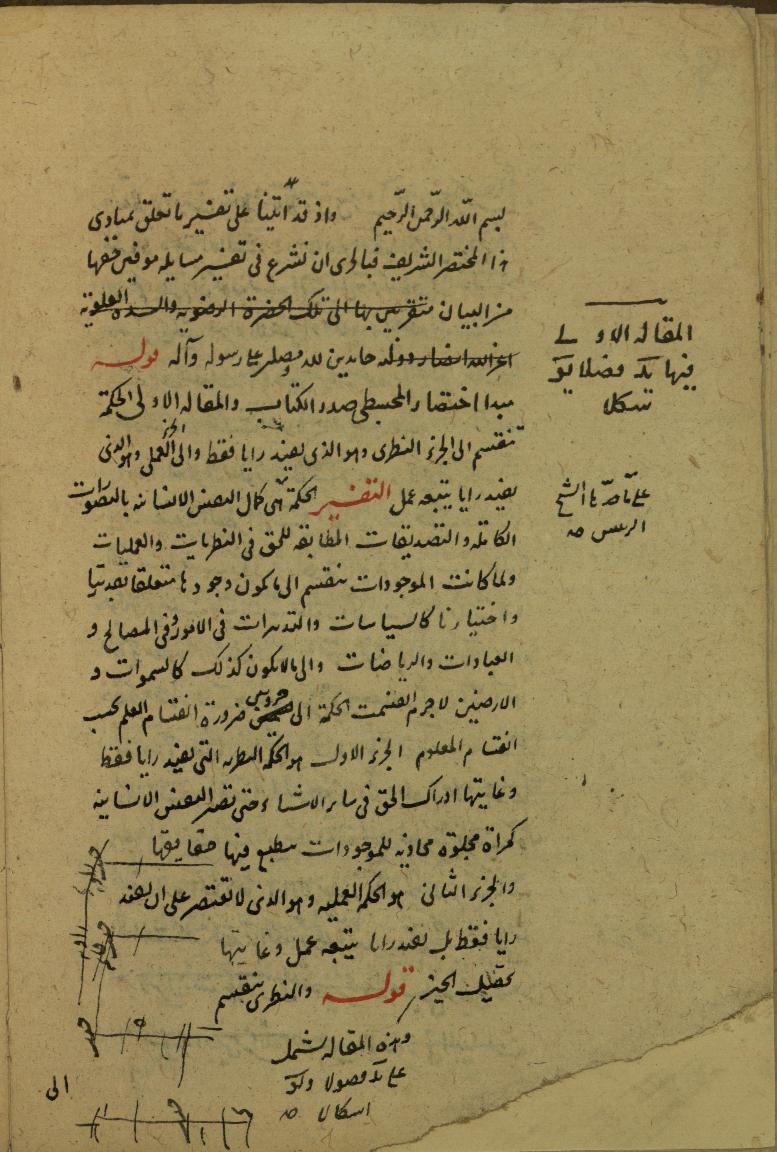 بسم الله الرحمن الرحيم واذ قد اتينا على تفسير ما تعلق بمبادى
هذا المختصر الشريف فبالحرى ان نشرع فى تفسير مسايله موفين حقها
من البيان متقربين بها الى تلك الحضرة الرضويه والسده العلويه
حامدين لله ومصلين على رسوله وآله قوله
مبدا اختصار المجسطى صدر الكتاب والمقاله الاولى الحكمة
تنقسم الى الجزء النظرى وهو الذى يفيد رايا فقط والى الجزء العملى وهو الذى
يفيد رايا يتبعه عمل التفسير الحكمة هى كمال النفس الانسانيه بالتصورات
الكامله والتصديقات المطابقه للحق فى النظريات والعمليات
ولما كانت الموجودات تنقسم الى ما يكون وجودها متعلقا بقدرتنا
واختيارنا كالسياسات والتدبيرات فى الامور وفى المصالح و
العبادات والرياضات والى ما لا يكون كذلك كالسموات و
الارضين لاجرم انقسمت الحكمة الى جزوين ضرورة انقسام العلم بحسب
انقسام المعلوم الجزء الاول هو الحكمة النظريه التى يفيد رايا فقط
وغايتها ادراك الحق فى ساير الاشياء حتى تصير النفس الانسانيه
كمرآة مجلوة محاذيه للموجودات ينطبع فيها حقايقها
والجزء الثانى هو الحكمة العمليه وهو الذى لا تقتصر على ان يفيد
رايا فقط بل يفيد رايا يتبعه عمل وغايتها
تحصيل الخير قوله والنظرى ينقسم
وهذه المقاله تشمل
على يد فصولا و
اشكال
الى
المقاله الاولى
فيها يد فصلا
شكلا
على ما
الشيخ
الرييس